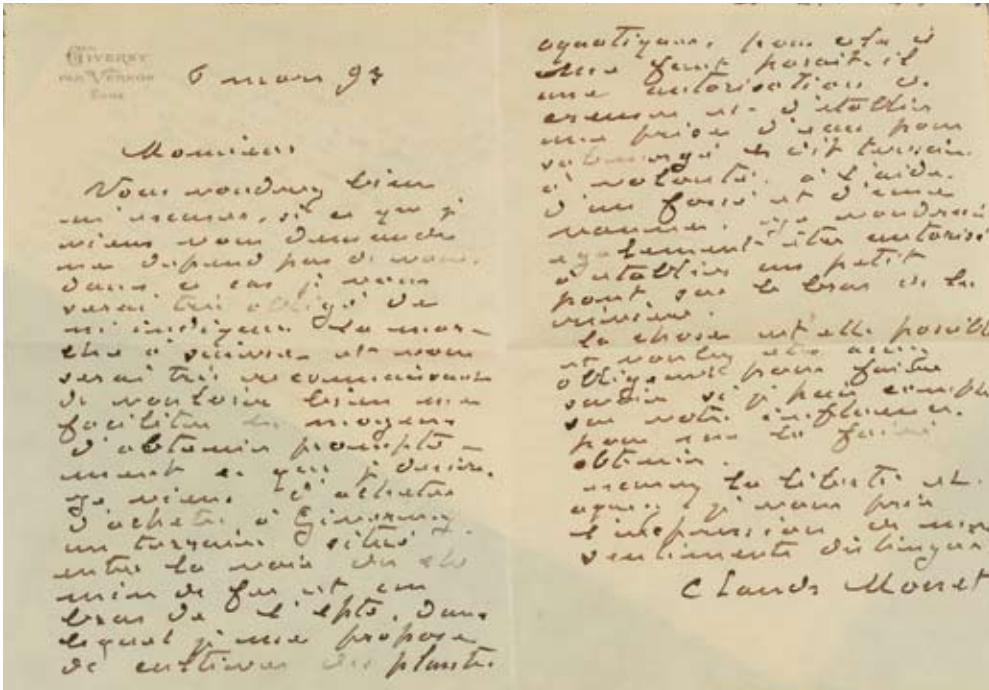 GIVERNY
PAR VERNON
EURE
6 mars 93
Monsieur
Vous voudrez bien
m'excuser, si ce que je
viens vous demande
ne dépend pas de vous,
dans ce cas je vous
serai très obligé de
m'indiquer la mar-
che à suivre et vous
serai très reconnaissant
de vouloir bien me
faciliter les moyens
d'obtenir prompte-
ment ce que je désire.
Je viens d'acheter
d'acheter à Giverny
un terrain situé
entre la voie du che
min de fer et un
bras de l'Epte, dans
lequel je me propose
de cultiver des plantes
aquatiques, pour cela il
me faut parait-il
une autorisation de
creuser et d'établir
une prise d'eau pour
submergé le dit terrain
à volonté, à l'aide
d'un fossé et d'une
vanne. Je voudrais
egalement être autorisé
d'établir un petit
pont, sur le bras de la
rivière.
la chose est elle possible
et voulez etre assez
obligeant pour faire
savoir si je puis compter
sur votre influence
pour me la faire
obtenir.
excusez la liberté et
agréez je vous prie
l'expression de mes
sentiments distingués
Claude Monet